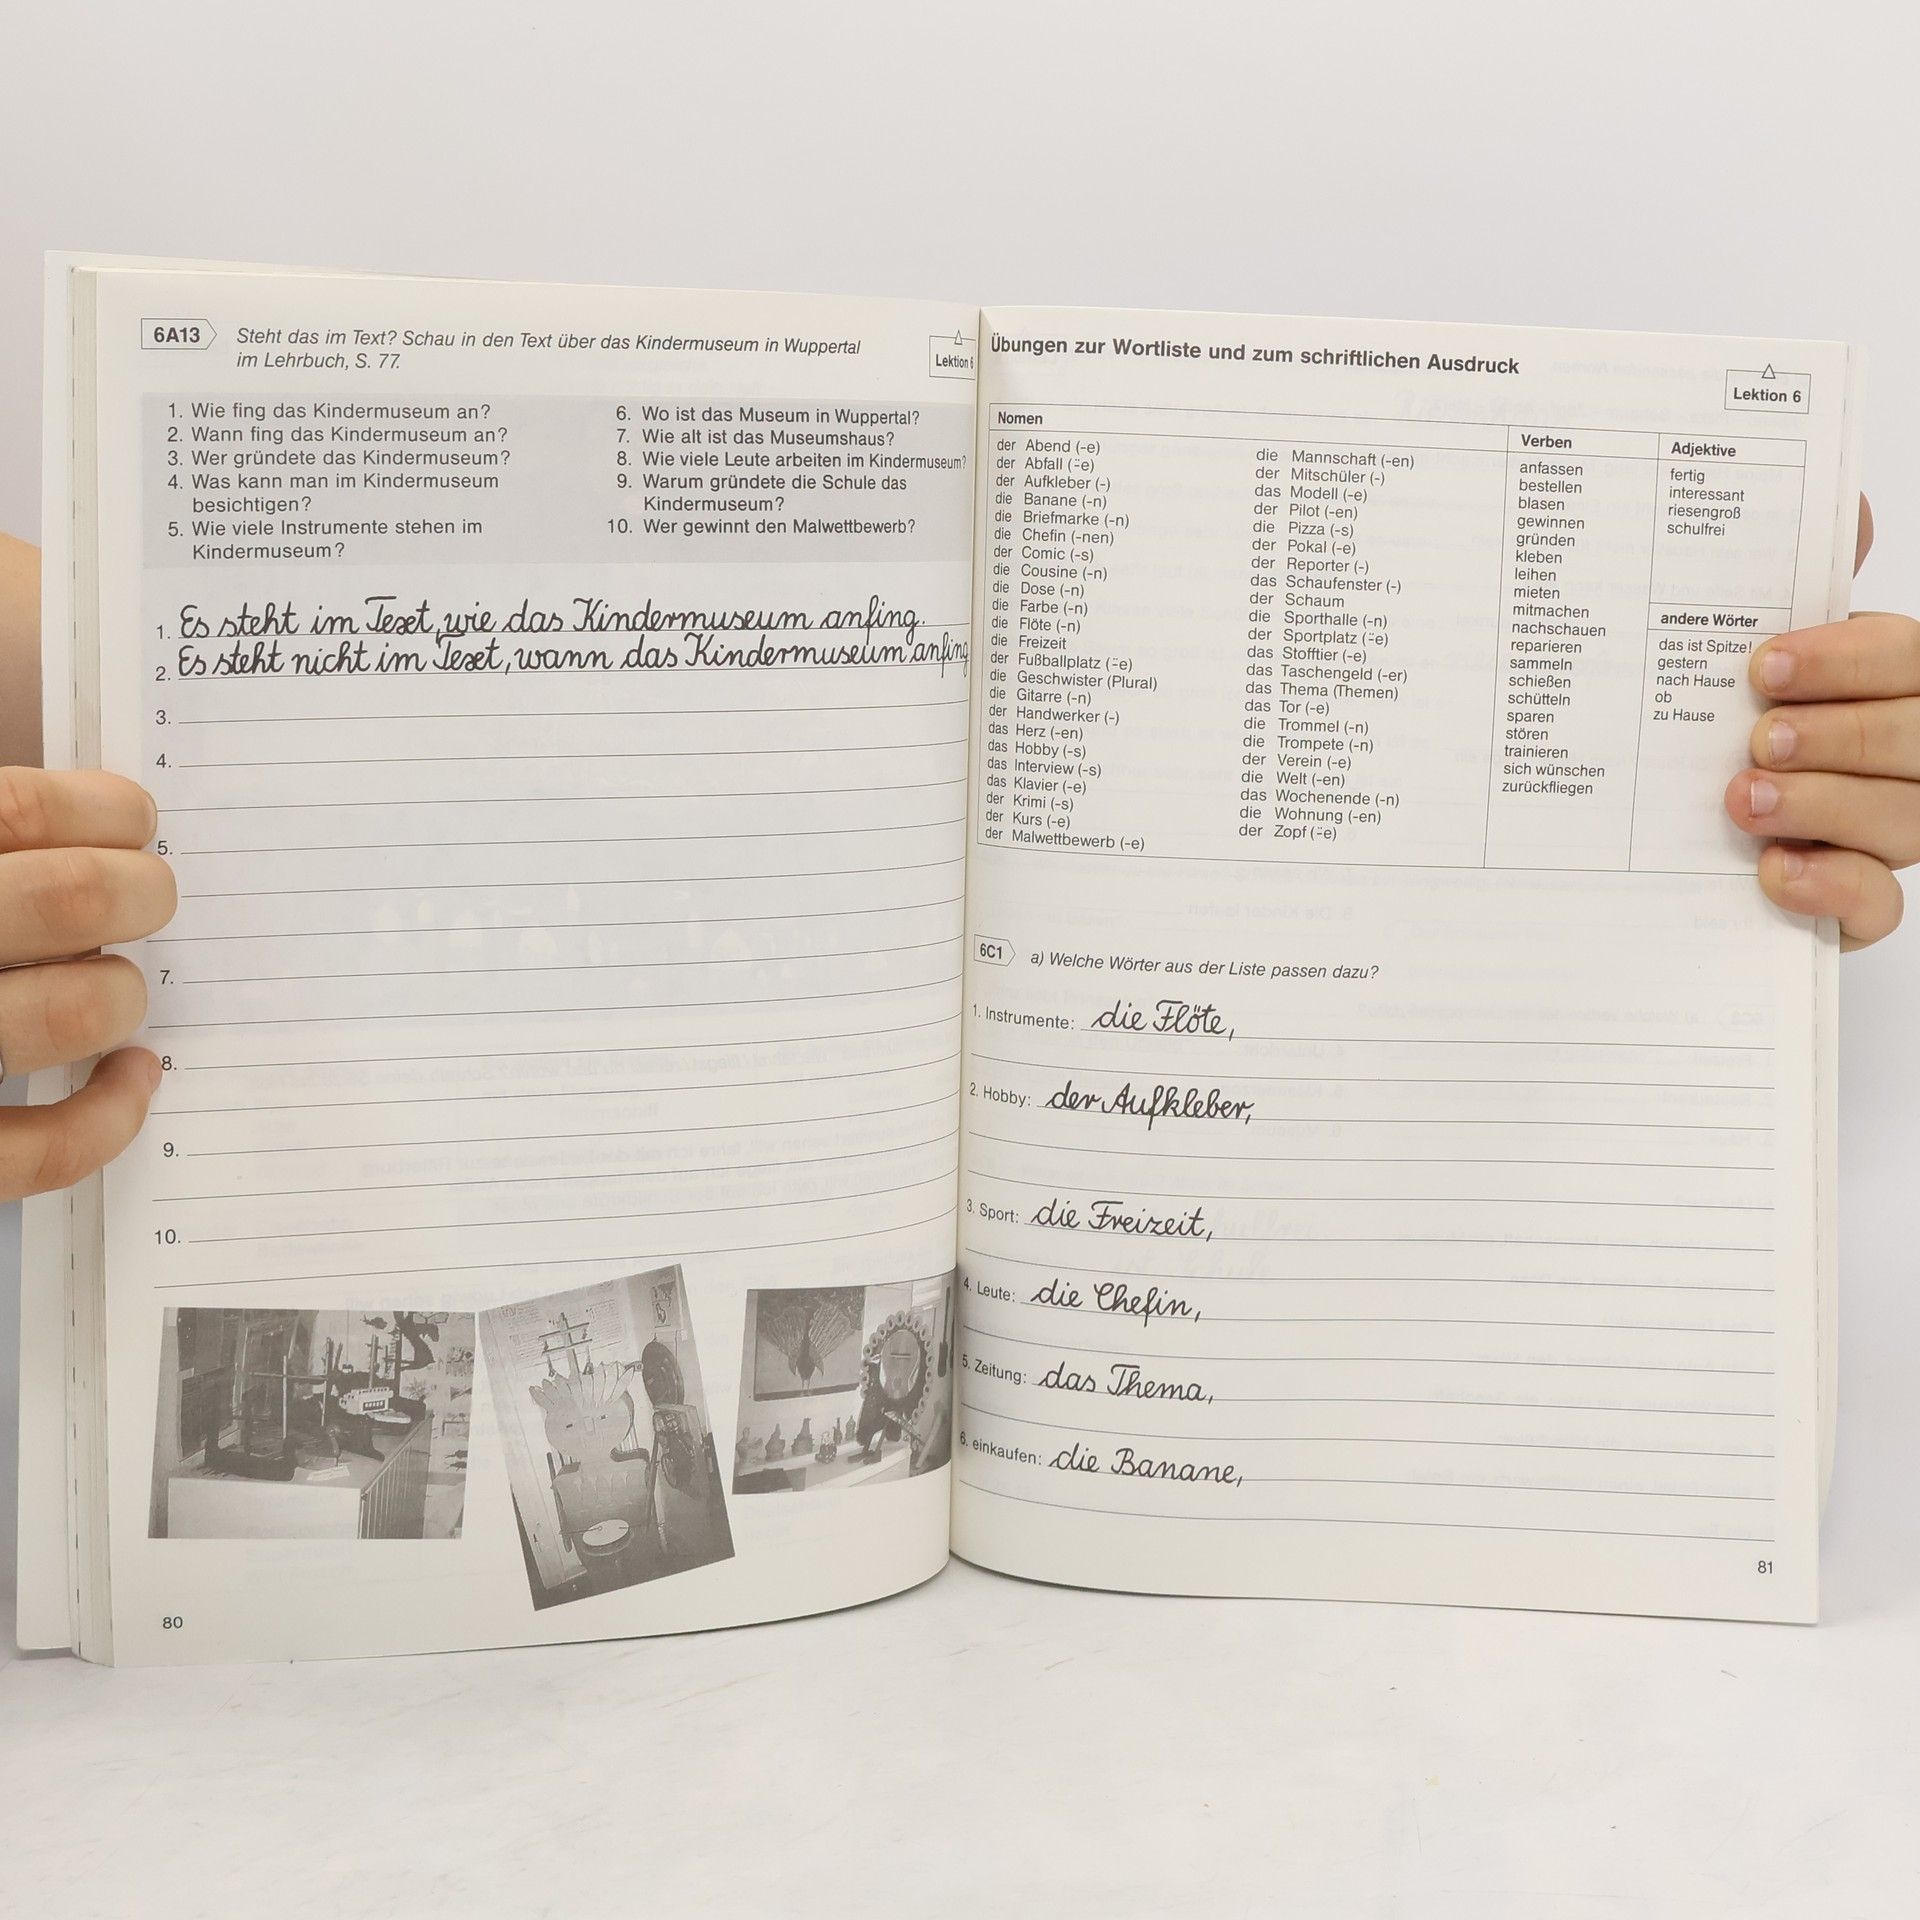 6A13
Steht das im Text? Schau in den Text über das Kindermuseum in Wuppertal
im Lehrbuch, S. 77.
Lektion 6
1. Wie fing das Kindermuseum an?
2. Wann fing das Kindermuseum an?
3. Wer gründete das Kindermuseum?
4. Was kann man im Kindermuseum
besichtigen?
5. Wie viele Instrumente stehen im
Kindermuseum?
6. Wo ist das Museum in Wuppertal?
7. Wie alt ist das Museumshaus?
8. Wie viele Leute arbeiten im Kindermuseum?
9. Warum gründete die Schule das
Kindermuseum?
10. Wer gewinnt den Malwettbewerb?
1. Es steht im Text, wie das Kindermuseum anfing.
2. Es steht nicht im Text, wann das Kindermuseum anfing
3.
4.
5.
7.
8.
9.
10.
80
Übungen zur Wortliste und zum schriftlichen Ausdruck
Lektion 6
Nomen
der Abend (-e)
der Abfall (-̈e)
der Aufkleber (-)
die Banane (-n)
die Briefmarke (-n)
die Chefin (-nen)
der Comic (-s)
die Cousine (-n)
die Dose (-n)
die Farbe (-n)
die Flöte (-n)
die Freizeit
der Fußballplatz (-̈e)
die Geschwister (Plural)
die Gitarre (-n)
der Handwerker (-)
das Herz (-en)
das Hobby (-s)
das Interview (-s)
das Klavier (-e)
der Krimi (-s)
der Kurs (-e)
der Malwettbewerb (-e)
die Mannschaft (-en)
der Mitschüler (-)
das Modell (-e)
der Pilot (-en)
die Pizza (-s)
der Pokal (-e)
der Reporter (-)
das Schaufenster (-)
der Schaum
die Sporthalle (-n)
der Sportplatz (-̈e)
das Stofftier (-e)
das Taschengeld (-er)
das Thema (Themen)
das Tor (-e)
die Trommel (-n)
die Trompete (-n)
der Verein (-e)
die Welt (-en)
das Wochenende (-n)
die Wohnung (-en)
der Zopf (-̈e)
Verben
anfassen
bestellen
blasen
gewinnen
gründen
kleben
leihen
mieten
mitmachen
nachschauen
reparieren
sammeln
schießen
schütteln
sparen
stören
trainieren
sich wünschen
zurückfliegen
Adjektive
fertig
interessant
riesengroß
schulfrei
andere Wörter
das ist Spitze!
gestern
nach Hause
ob
zu Hause
6C1
a) Welche Wörter aus der Liste passen dazu?
1. Instrumente: die Flöte,
2. Hobby: der Aufkleber,
3. Sport: die Freizeit,
4. Leute: die Chefin,
5. Zeitung: das Thema,
6. einkaufen: die Banane,
81